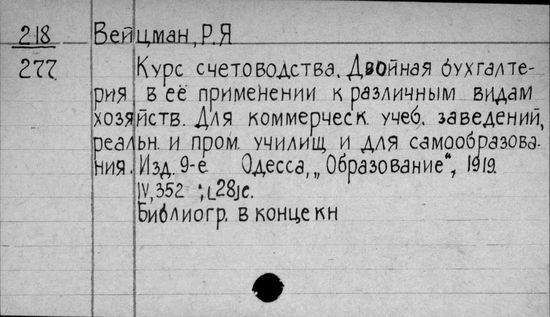 218 Вейцман, Р.Я
277 Курс счетоводства. Двойная бухгалте-
рия в её применении к различным видам
хозяйств. Для коммерческ. учеб. заведений,
реальн. и пром. училищ и для самообразова-
ния. Изд. 9-е Одесса, „Образование", 1919.
IV, 352 ; [28]с.
Библиогр. в конце кн